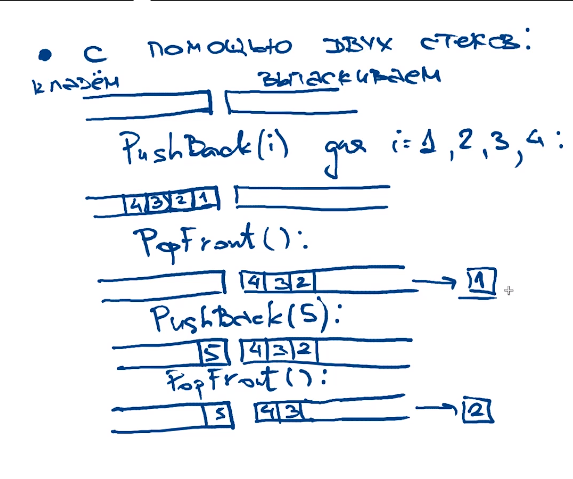 • с помощью двух стеков:
кладём вытаскиваем
PushBack(i) для i=1,2,3,4:
4 3 2 1
PopFront():
4 3 2 → 1
PushBack(5):
5 4 3 2
PopFront():
5 4 3 → 2